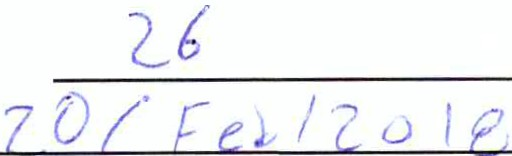 26
20/Feb/2018